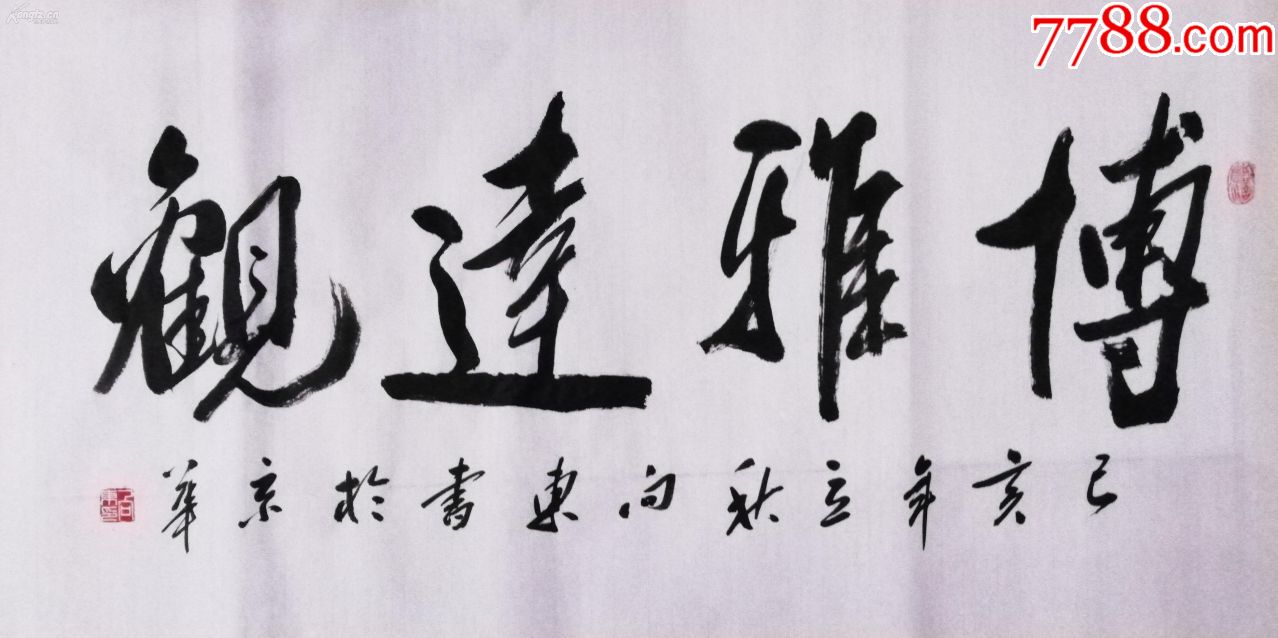 7788.com
博雅達觀
己亥年立秋向東書於京華